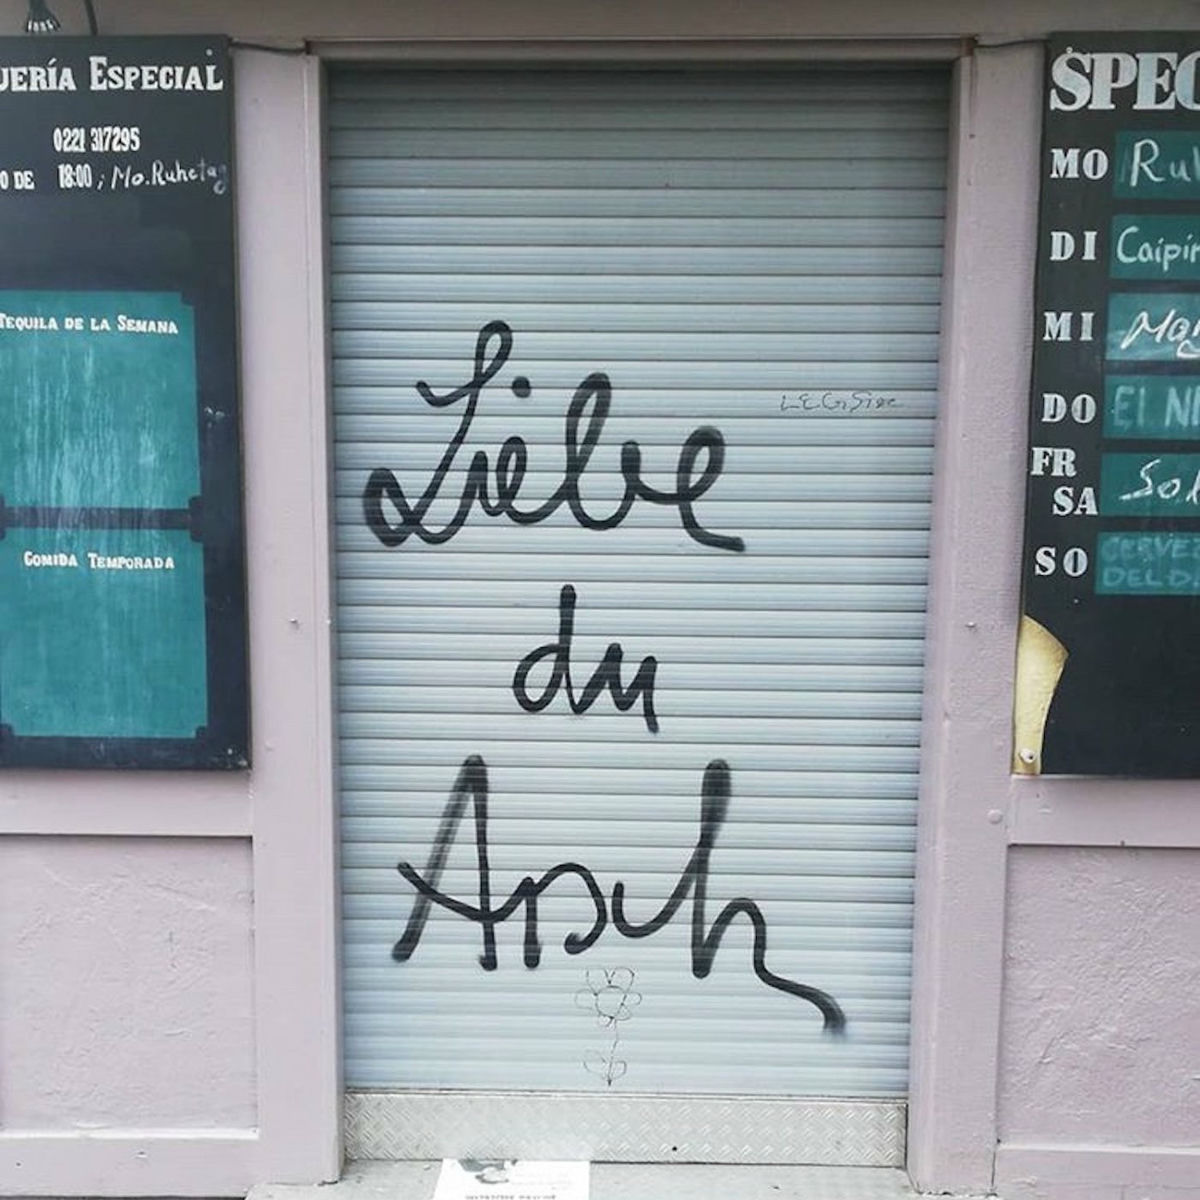 UERÍA ESPECIAL
0221 317295
O DE 18:00 ; Mo. Ruhetag
TEQUILA DE LA SEMANA
COMIDA TEMPORADA
Liebe
du
Arsch
SPEC
MO Ruh
DI Caipir
MI
DO El N
FR
SA Sol
SO CERVE
DEL D